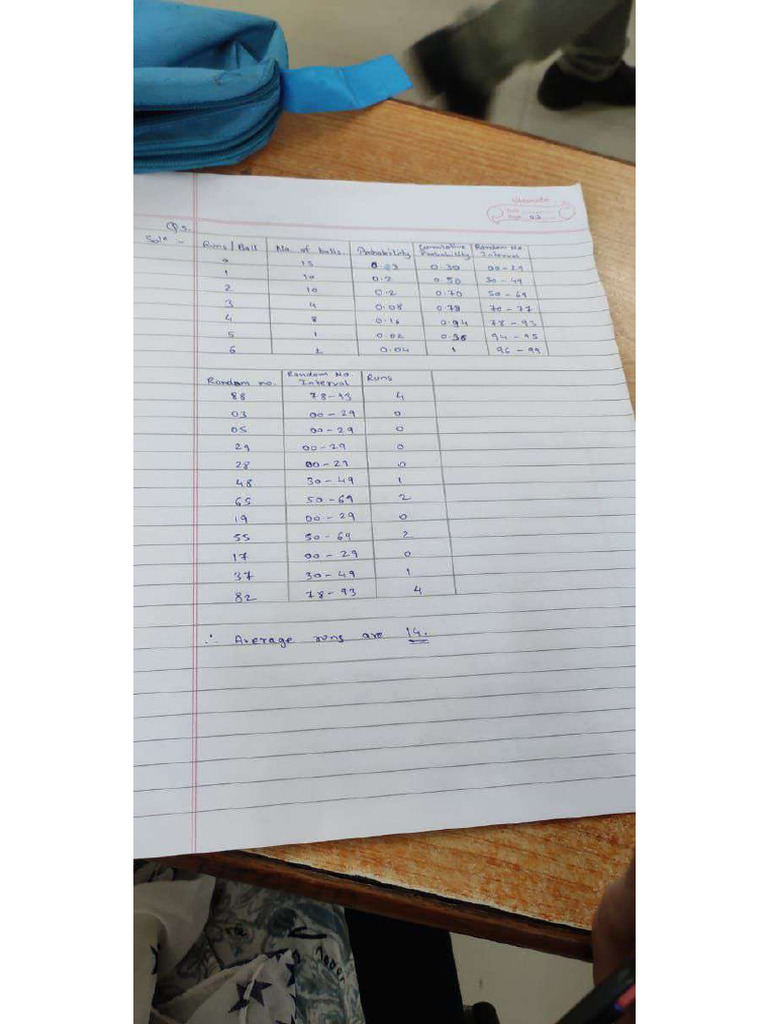 Page 03
Q5.
Solⁿ - Runs / Ball No. of balls Probability Cumulative Probability Random No. Interval
0 15 0.3 0.30 00-29
1 10 0.2 0.50 30-49
2 10 0.2 0.70 50-69
3 4 0.08 0.78 70-77
4 8 0.16 0.94 78-93
5 1 0.02 0.96 94-95
6 2 0.04 1 96-99
Random no. Random No. Interval Runs
88 78-93 4
03 00-29 0
05 00-29 0
29 00-29 0
28 00-29 0
48 30-49 1
65 50-69 2
19 00-29 0
55 50-69 2
17 00-29 0
37 30-49 1
82 78-93 4
∴ Average runs are 14.